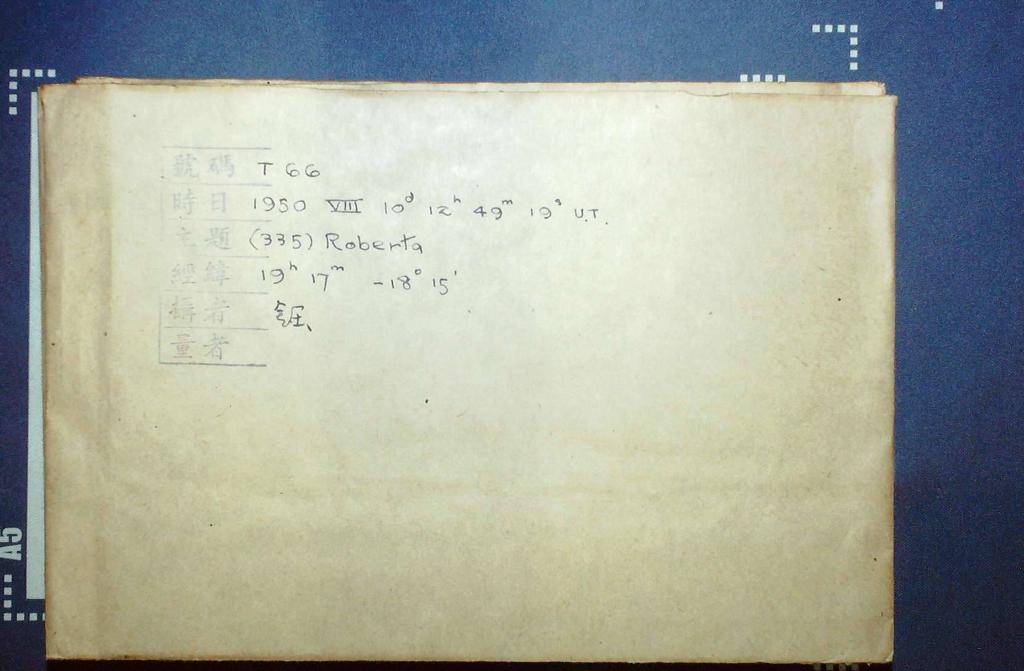 號碼 T 66
時日 1950 VIII 10ᵈ 12ʰ 49ᵐ 19ˢ U.T.
主題 (335) Roberta
經緯 19ʰ 17ᵐ -18° 15'
攝者
量者
A5